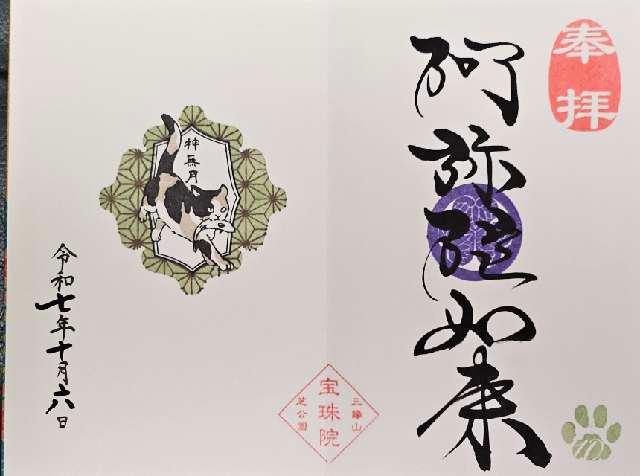 奉拝
阿弥陀如来
三縁山
宝珠院
芝公園
神無月
令和七年十月六日